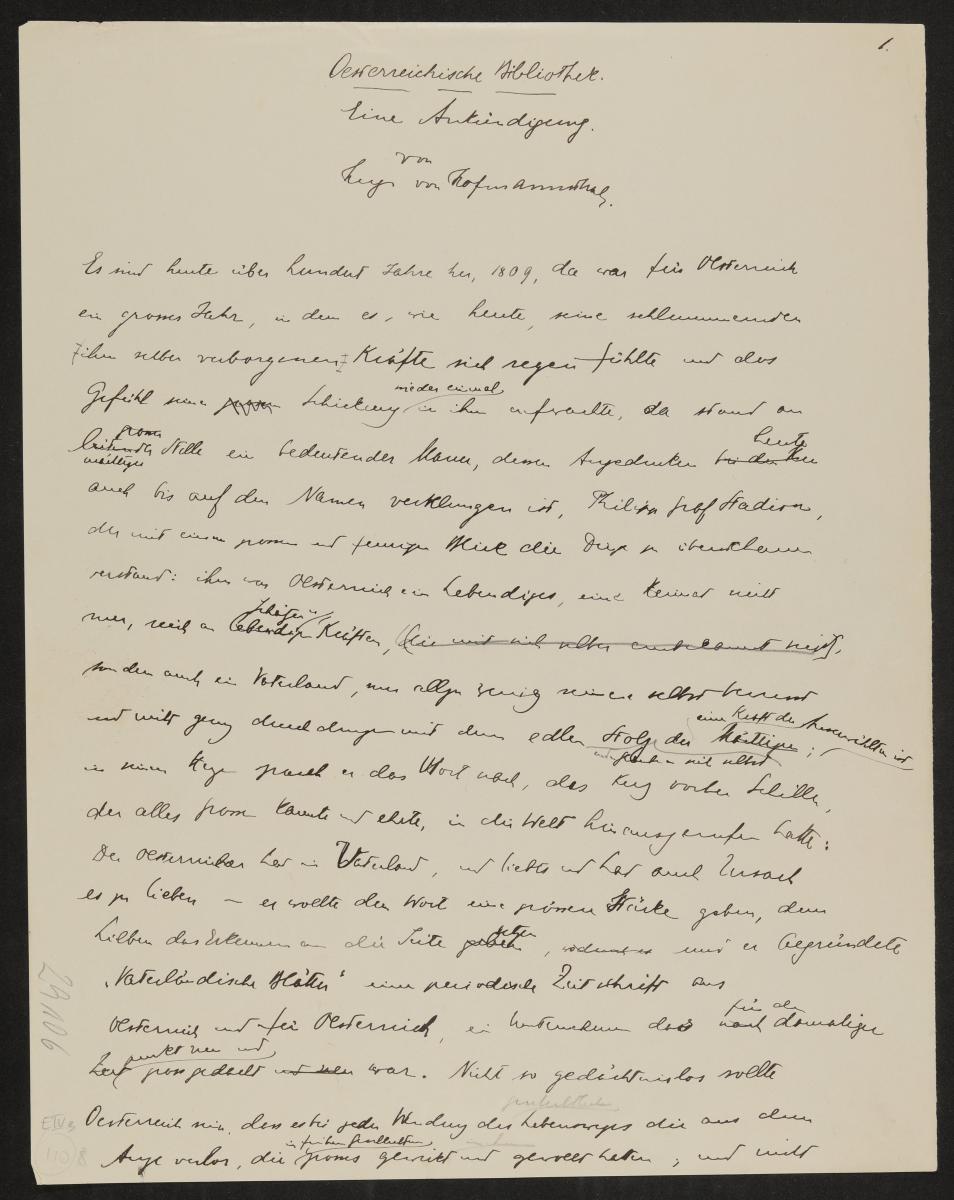 1.
Oesterreichische Bibliothek.
Eine Ankündigung.
von
Hugo von Hofmannsthal.
Es sind heute über hundert Jahre her, 1809, da war für Oesterreich
ein grosses Jahr, in dem es, wie heute, seine schlummernden
ihm selber verborgenen Kräfte sich regen fühlte und das
wieder einmal
Gefühl seiner grossen Schickung in ihm aufwachte, da stand an
grosser
Stelle ein bedeutender Mann, dessen Angedenken heute
auch bis auf den Namen verklungen ist, Philipp Graf Stadion,
der mit einem grossen und feurigen Blick die Dinge zu überschauen
verstand: ihm war Oesterreich ein Lebendiges, eine Heimat nicht
nur, reich an lebendigen Kräften,
sondern auch ein Vaterland, nur allzu wenig seiner selbst bewusst
eine Kraft der
und nicht genug durchdrungen mit dem edlen Stolz der Mächtigen;
und Glauben sich selbst
in seinem Herzen sprach er das Wort nach, das kurz vorher Schiller,
der alles Grosse kannte und ehrte, in die Welt hinausgerufen hatte:
Der Oesterreicher hat ein Vaterland, und liebts und hat auch Ursach
es zu lieben – er wollte dem Wort eine grössere Stärke geben, dem
setzen
Lieben das Erkennen an die Seite geben, und er begründete
„Vaterländische Blätter" eine periodische Zeitschrift aus
für den
Oesterreich und für Oesterreich, ein Unternehmen das nach damaliger
punkt neu und
Zeit gross gedacht und neu war. Nicht so gedächtnislos sollte
Oesterreich sein, dass es bei jeder Wendung des Lebensweges die aus dem
in früheren Geschlechtern
Auge verlor, die grosses gewirkt und gewollt haben; und nicht
29106
E IV 
110/8